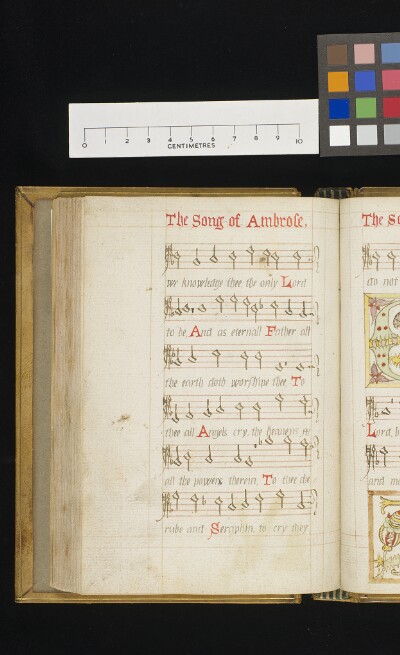 0 1 2 3 4 5 6 7 8 9 10
CENTIMETRES
The Song of Ambrose.
we knowledg thee the only Lord
to be And as eternall Father all
the earth doth worshipe thee To
thee all Angels cry, thy heavens
all the powers therein. To thee
rubs and Seraphin, to cry they
The So
do not
Lord, b
and